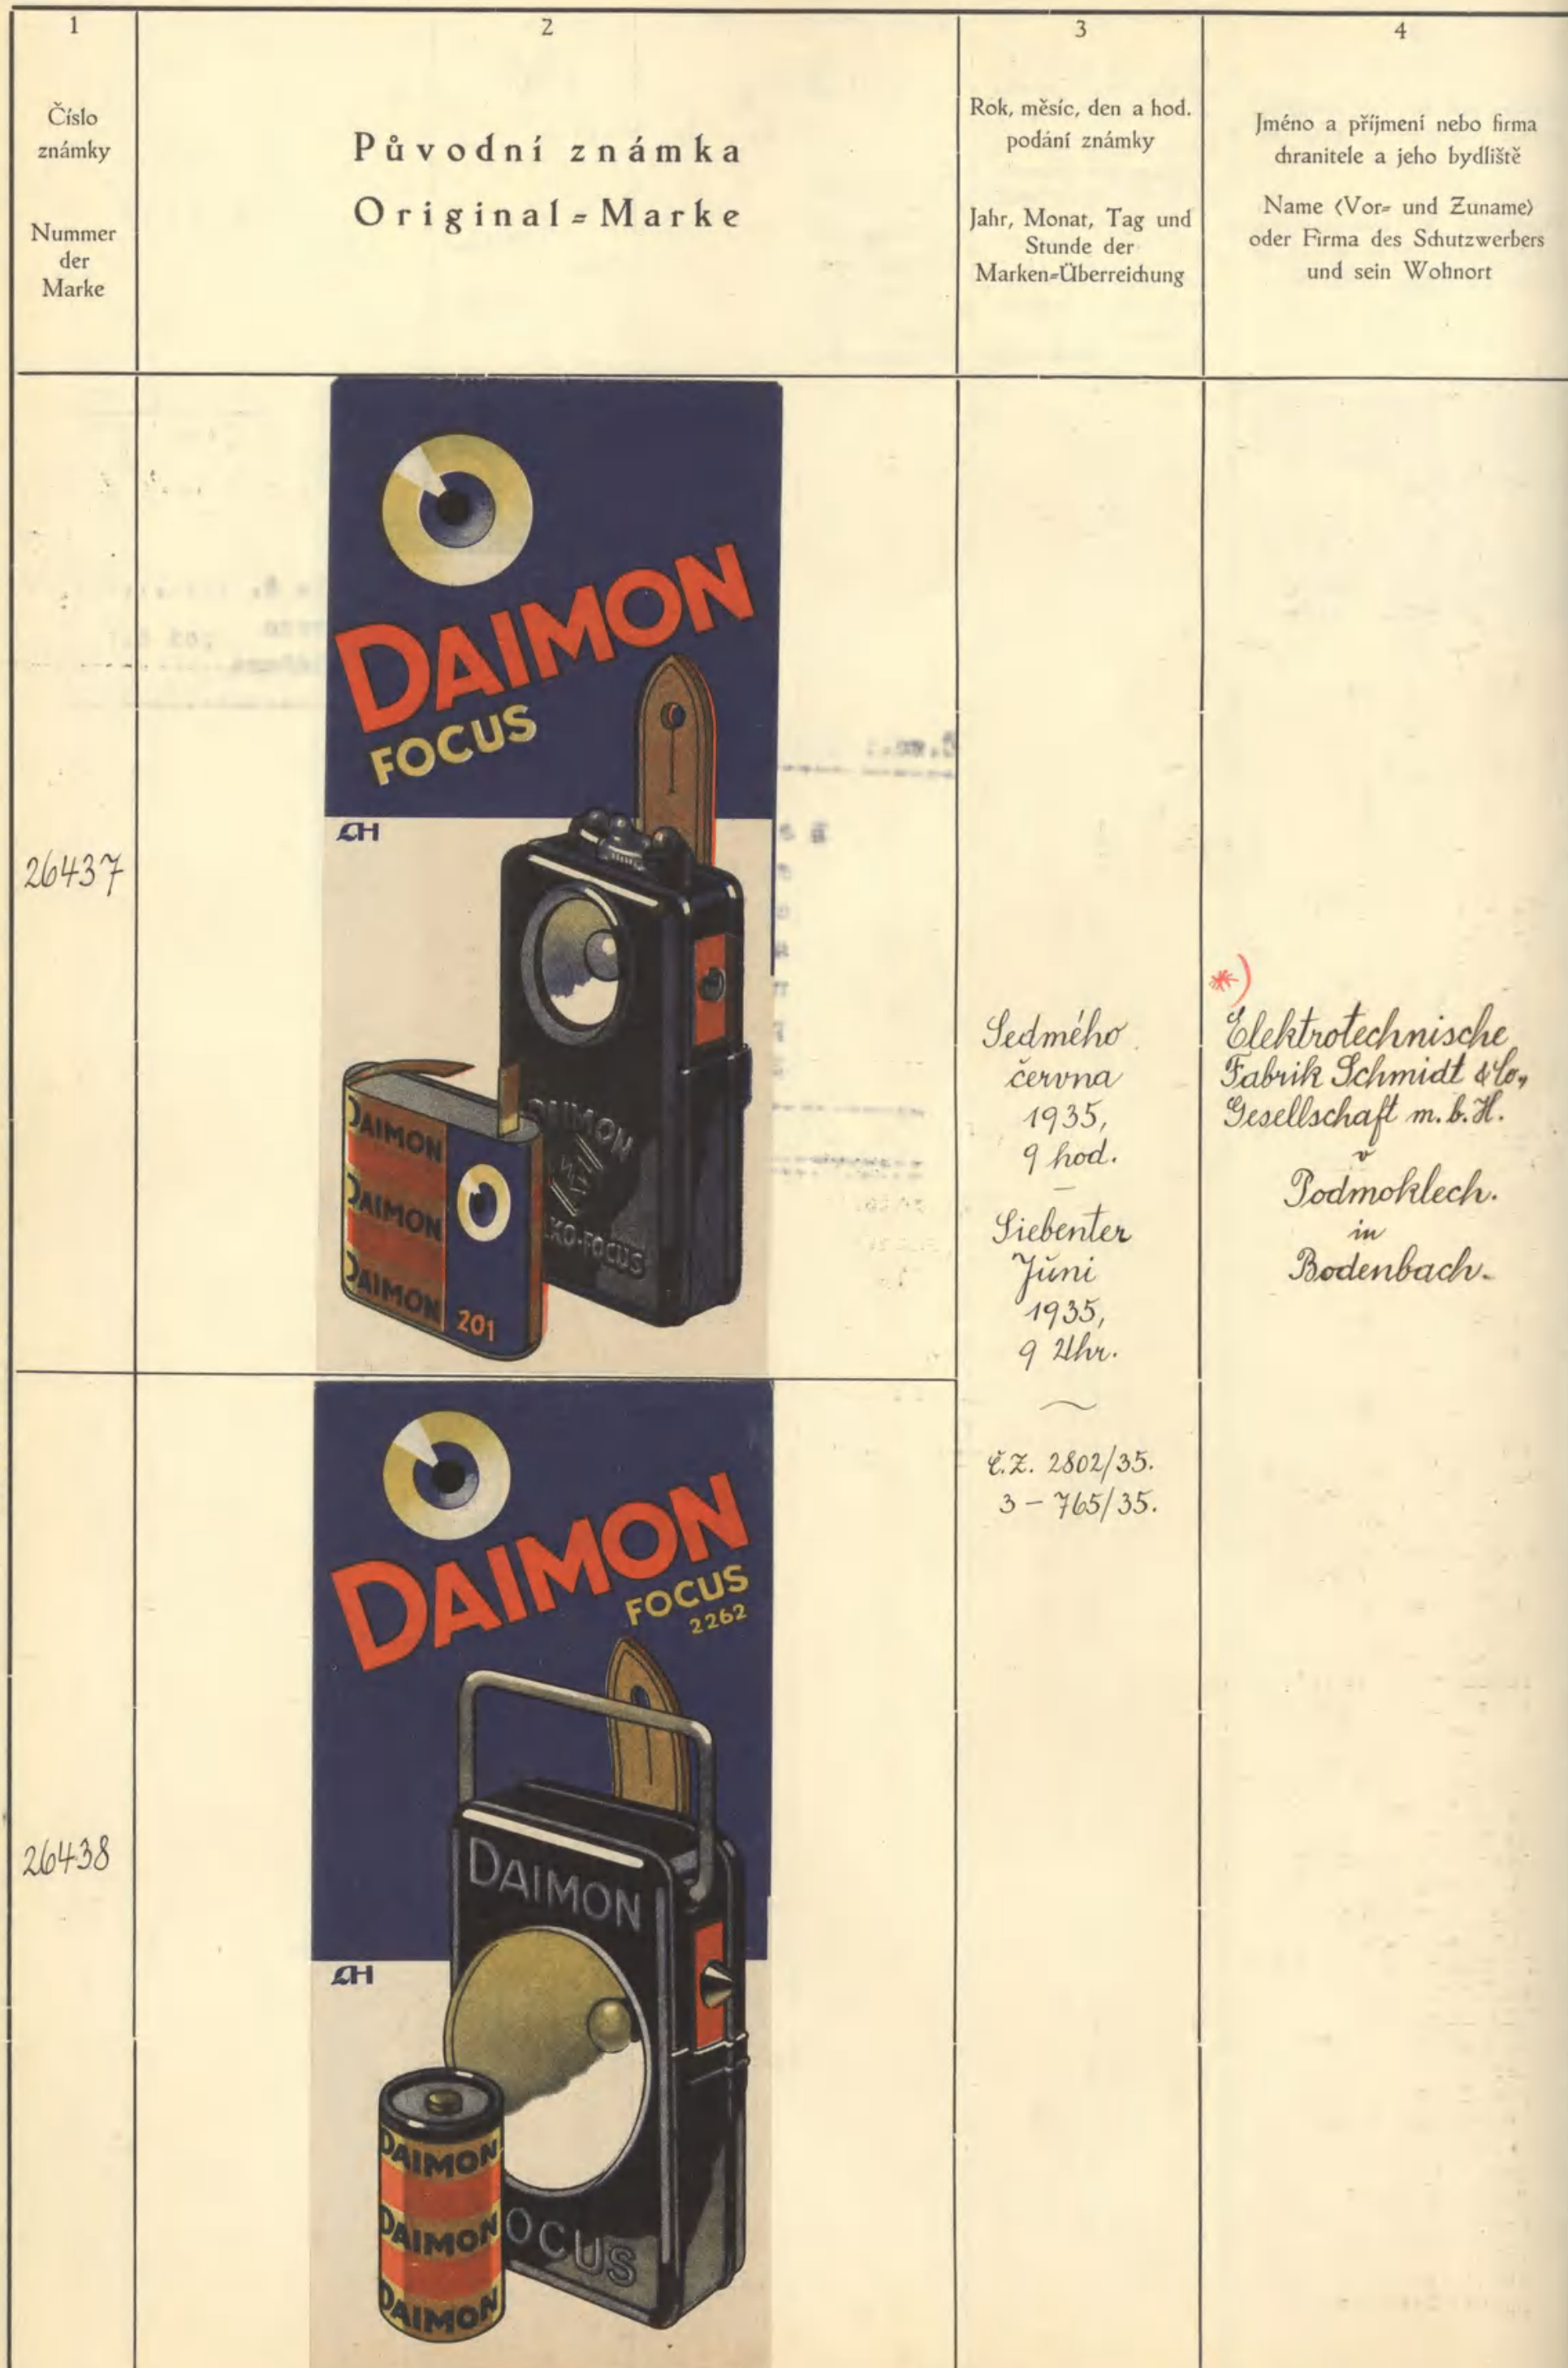 1
Číslo
známky
Nummer
der
Marke
2
Původní známka
Original=Marke
3
Rok, měsíc, den a hod.
podání známky
Jahr, Monat, Tag und
Stunde der
Marken=Überreichung
4
Jméno a příjmení nebo firma
chranitele a jeho bydliště
Name (Vor= und Zuname)
oder Firma des Schutzwerbers
und sein Wohnort
26437
DAIMON
FOCUS
DAIMON
DAIMON
DAIMON
201
DAIMON
LKO-FOCUS
Sedmého
června
1935,
9 hod.
Siebenter
Juni
1935,
9 Uhr.
Č.Z. 2802/35.
3 – 765/35.
*)
Elektrotechnische
Fabrik Schmidt & Co.,
Gesellschaft m. b. H.
v
Podmoklech.
in
Bodenbach.
26438
DAIMON
FOCUS
2262
DAIMON
OCUS
DAIMON
DAIMON
DAIMON